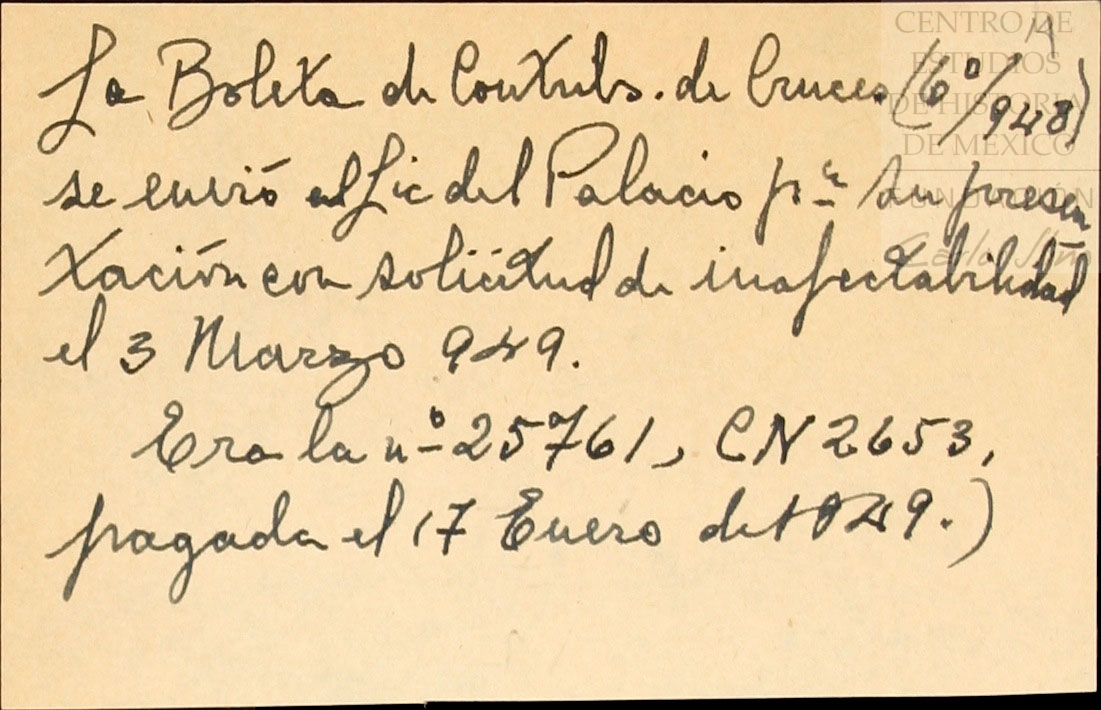 La Boleta de Contribs. de Cruces (6º/948)
se envió al Lic del Palacio pª su presen
tación con solicitud de inafectabilidad
el 3 Marzo 949.
Era la nº 25761, CN 2653,
pagada el 17 Enero de 1949.)
CENTRO DE
ESTUDIOS
DE HISTORIA
DE MÉXICO
FUNDACIÓN
Carlos Slim